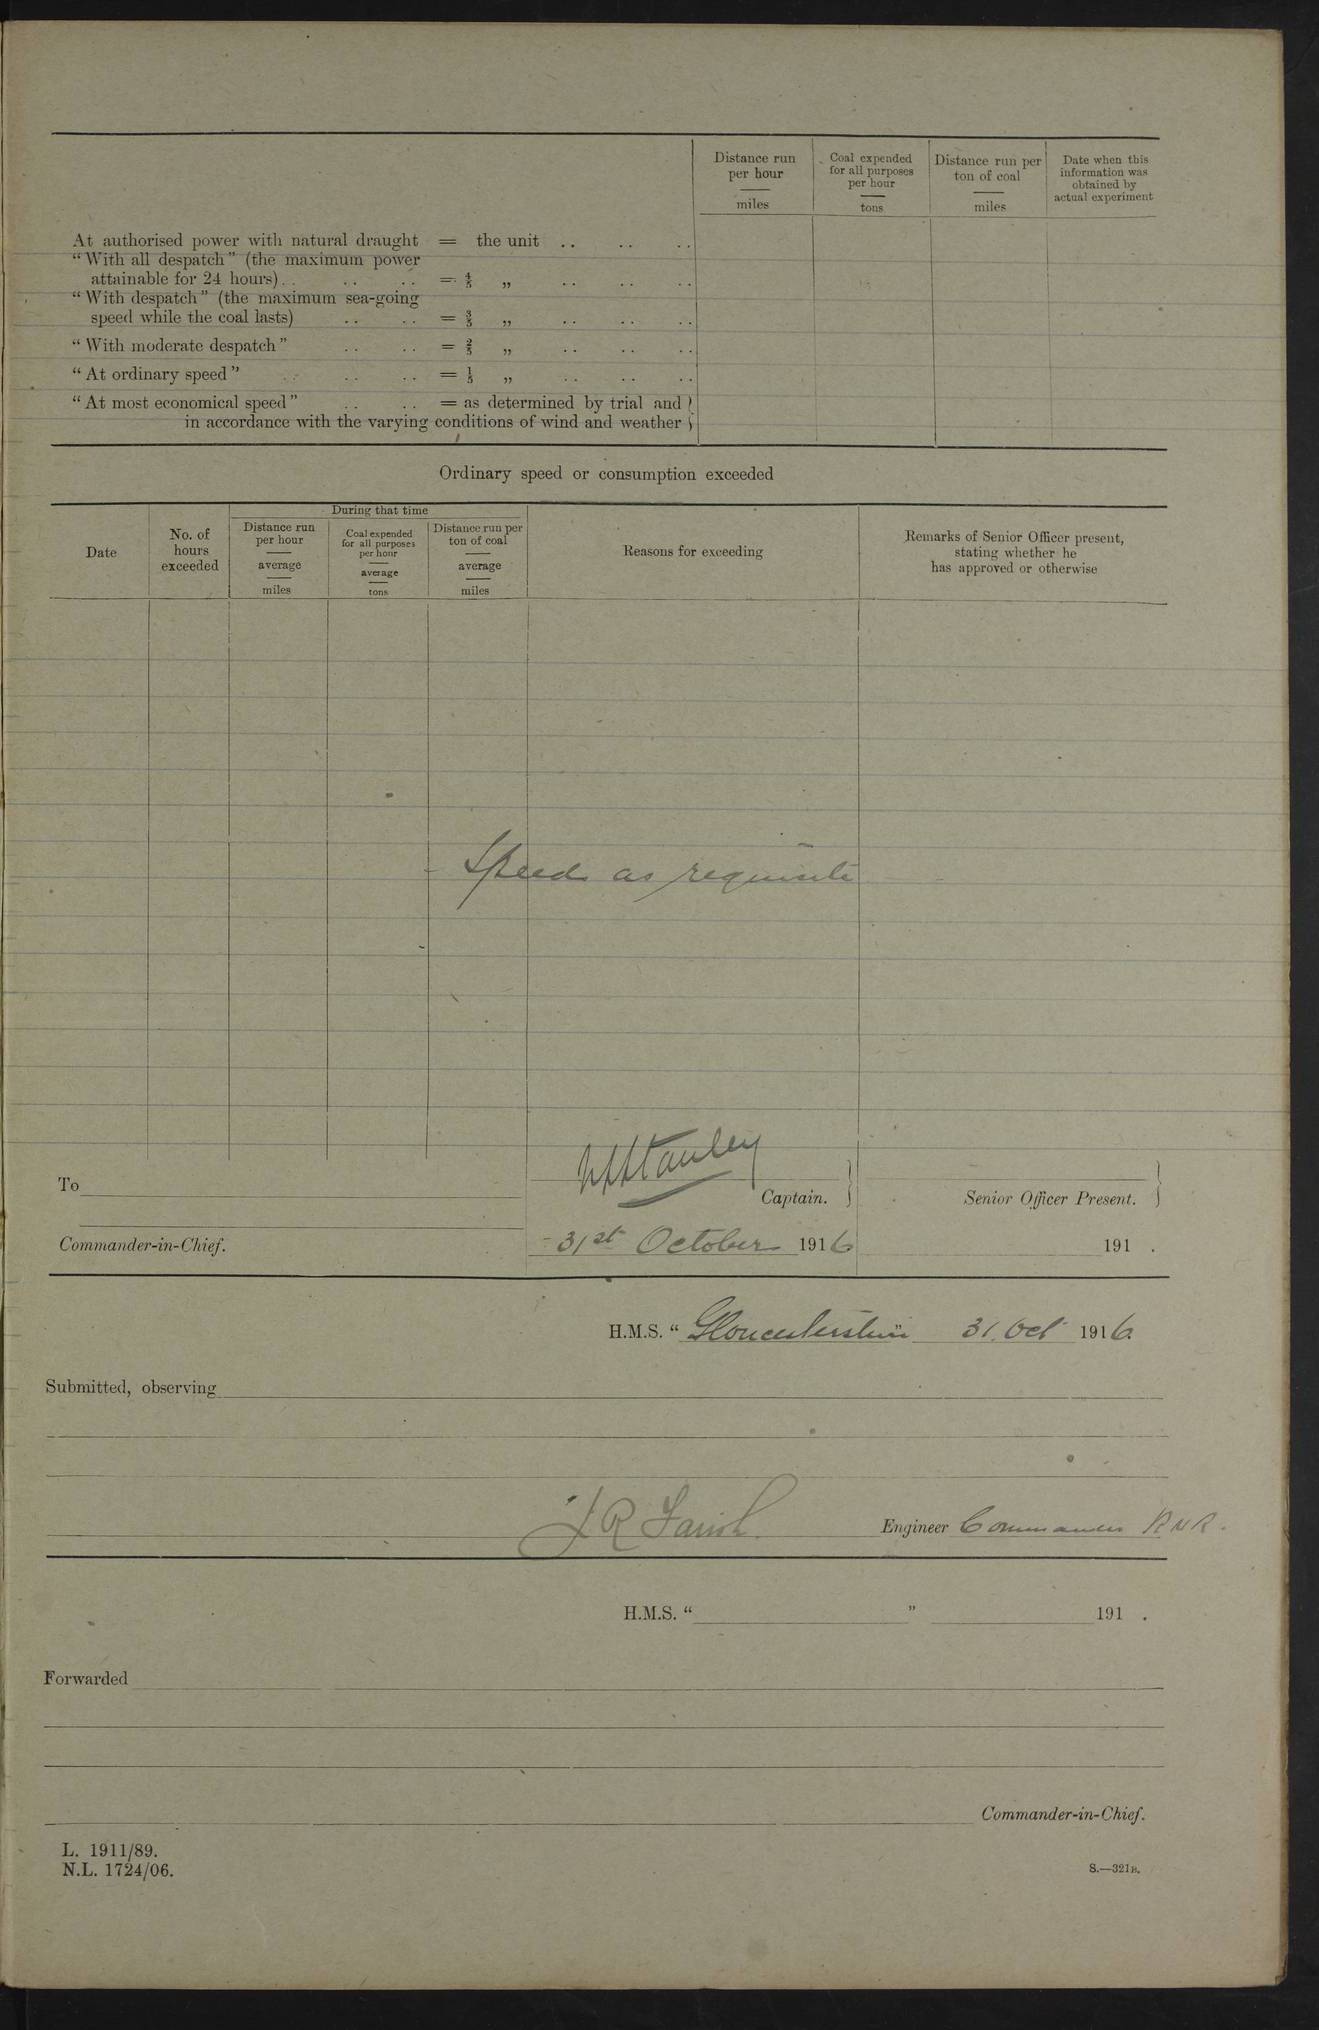 Distance run per hour — miles
Coal expended for all purposes per hour — tons
Distance run per ton of coal — miles
Date when this information was obtained by actual experiment
At authorised power with natural draught = the unit .. .. ..
“With all despatch” (the maximum power
attainable for 24 hours) .. .. .. = 4/5 „ .. .. ..
“With despatch” (the maximum sea-going
speed while the coal lasts) .. .. = 3/5 „ .. .. ..
“With moderate despatch” .. .. = 2/5 „ .. .. ..
“At ordinary speed” .. .. .. = 1/5 „ .. .. ..
“At most economical speed” .. .. = as determined by trial and }
in accordance with the varying conditions of wind and weather }
Ordinary speed or consumption exceeded
Date
No. of hours exceeded
During that time
Distance run per hour — average — miles
Coal expended for all purposes per hour — average — tons
Distance run per ton of coal — average — miles
Reasons for exceeding
Remarks of Senior Officer present, stating whether he has approved or otherwise
Speed as requisite
To
Stanley
Captain. }
Senior Officer Present. }
Commander-in-Chief.
31st October 1916
191 .
H.M.S. “Gloucestershire” 31. Oct 1916.
Submitted, observing
J R Farish. Engineer Commander R N R.
H.M.S. “ ” 191 .
Forwarded
Commander-in-Chief.
L. 1911/89.
N.L. 1724/06.
S.—321B.